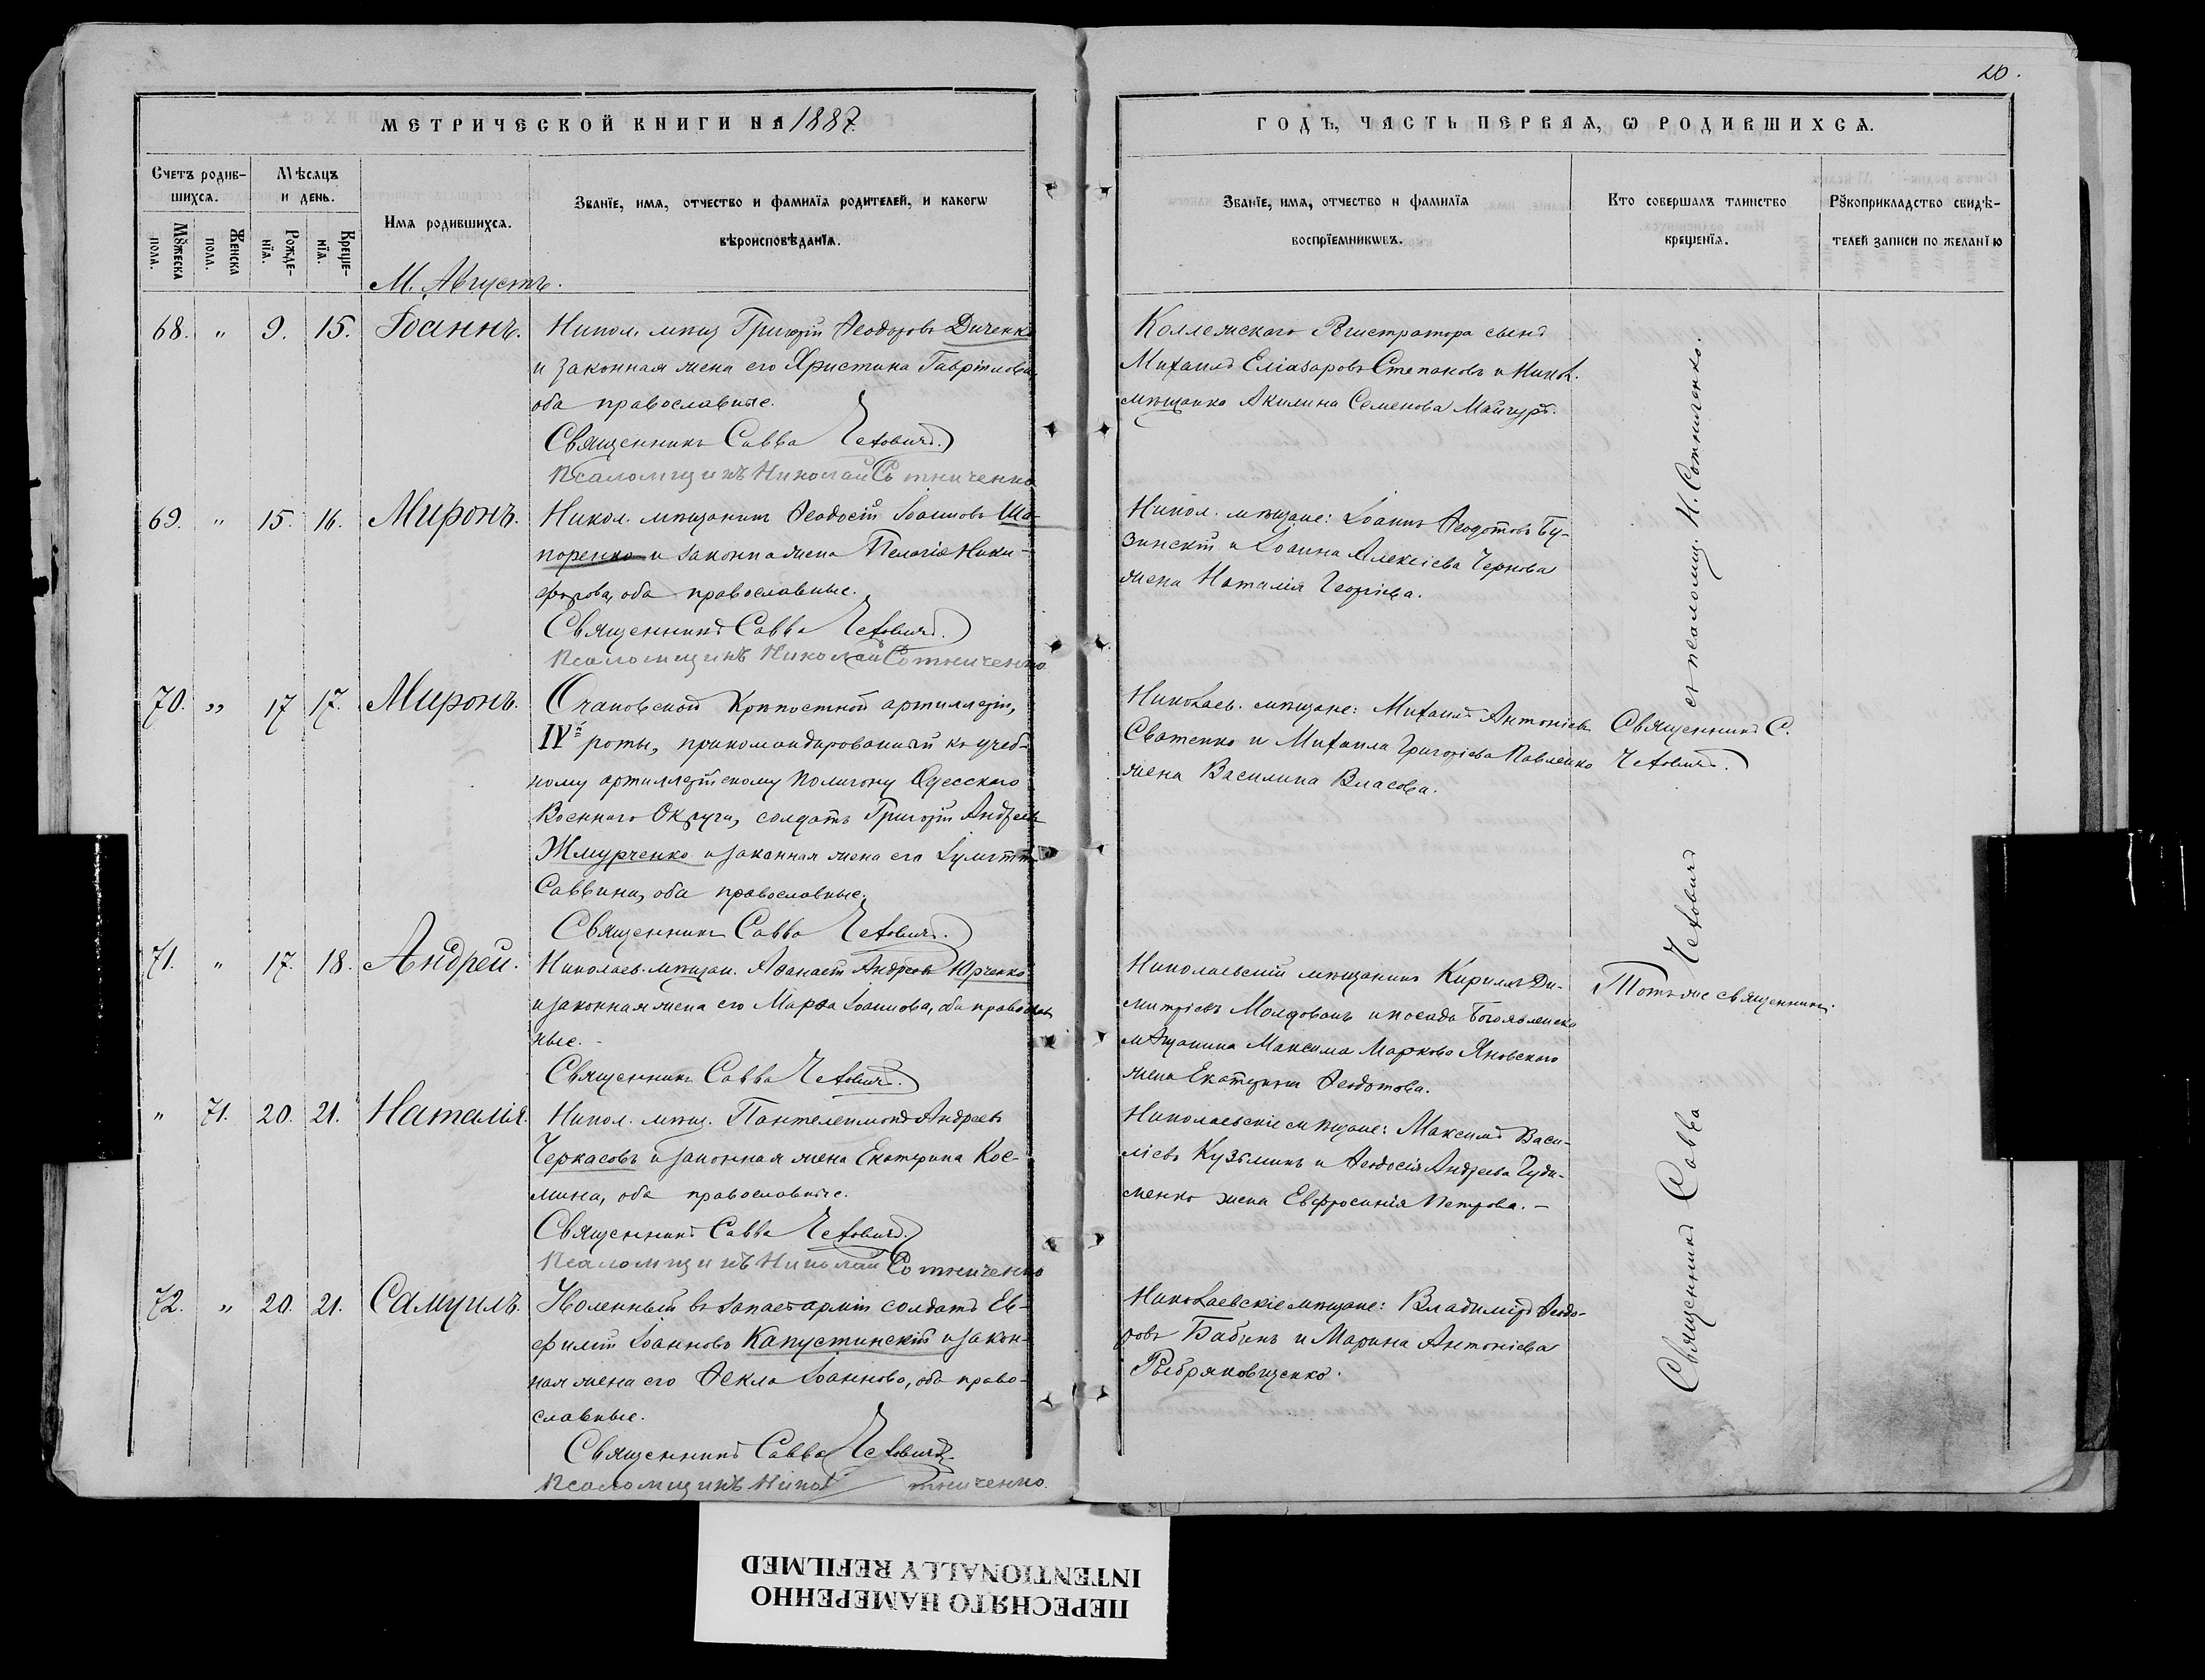 20.
МЕТРИЧЕСКОЙ КНИГИ НА 1887
ГОДЪ, ЧАСТЬ ПЕРВАЯ, Ѡ РОДИВШИХСѦ.
Счетъ родив-
шихсѧ.
Мꙋжеска
пола.
Женска
пола.
Мѣсѧцъ
и день.
Рожде-
нїѧ.
Креще-
нїѧ.
Имѧ родившихсѧ.
Званїе, имѧ, отчество и фамилїѧ родителей, и какогѡ
вѣроисповѣданїѧ.
Званїе, имѧ, отчество и фамилїѧ
воспрїемникѡвъ.
Кто совершалъ таинство
крещенїѧ.
Рꙋкоприкладство свидѣ-
телей записи по желанїю
М. Августъ.
68. " 9. 15. Іоаннъ.
Никол. мѣщ Григорій Ѳеодоровъ Диченко
и законная жена его Христина Гавріилова,
оба православные.
Священникъ Савва Чехович.
Псаломщикъ Николай Сотниченко
Коллежскаго Регистратора сынъ
Михаилъ Еліазаровъ Степановъ и Никол.
мѣщанка Акилина Семенова Майгуръ.
69. " 15. 16. Миронъ.
Никол. мѣщанинъ Ѳеодосій Іоанновъ Ша-
поренко и законная жена Пелагія Ники-
форова, оба православные.
Священникъ Савва Чехович.
Псаломщикъ Николай Сотниченко
Никол. мѣщане: Іоаннъ Ѳеодотовъ Бу-
зинскій и Іоанна Алексіева Чернова
жена Наталія Георгіева.
70. " 17 17. Миронъ.
Очаковской Крѣпостной артиллеріи,
IVй роты, прикомандированный къ учеб-
ному артиллерійскому полигону Одесскаго
Военнаго Округа, солдатъ Григорій Андреевъ
Жмурченко и законная жена его Іулитта
Саввина, оба православные.
Священникъ Савва Чехович.
Николаев. мѣщане: Михаилъ Антоніевъ
Сватенко и Михаила Григоріева Павленко
жена Василина Власова.
Священникъ С.
Чехович.
71. " 17. 18. Андрей.
Николаев. мѣщан. Аѳанасій Андреевъ Юрченко
и законная жена его Марѳа Іоаннова, оба православ
ные.
Священникъ Савва Чехович.
Николаевскій мѣщанинъ Кириллъ Ди-
митріевъ Молдованъ и посада Богоявленска
мѣщанина Максима Маркова Яновскаго
жена Екатерина Ѳеодотова.
Тотъ же священникъ.
" 71. 20. 21. Наталія.
Никол. мѣщ. Пантелеимонъ Андреевъ
Черкасовъ и законная жена Екатерина Кос-
мина, оба православные.
Священникъ Савва Чехович.
Псаломщикъ Николай Сотниченко
Николаевскіе мѣщане: Максимъ Васи-
ліевъ Кузьминъ и Ѳеодосія Андреева Гуди-
менко жена Евфросинія Петрова. —
72. " 20. 21. Самуилъ.
Уволенный въ запасъ арміи солдатъ Ев-
фимій Іоанновъ Капустинскій и закон-
ная жена его Ѳекла Іоаннова, оба право-
славные.
Священникъ Савва Чехович.
Псаломщикъ Никол тниченко.
Николаевскіе мѣщане: Владиміръ Ѳеодо-
ровъ Бабинъ и Марина Антоніева
Священникъ Савва Чехович съ псаломщ. Н. Сотниченко.
ПЕРЕСНЯТО НАМЕРЕННО
INTENTIONALLY REFILMED